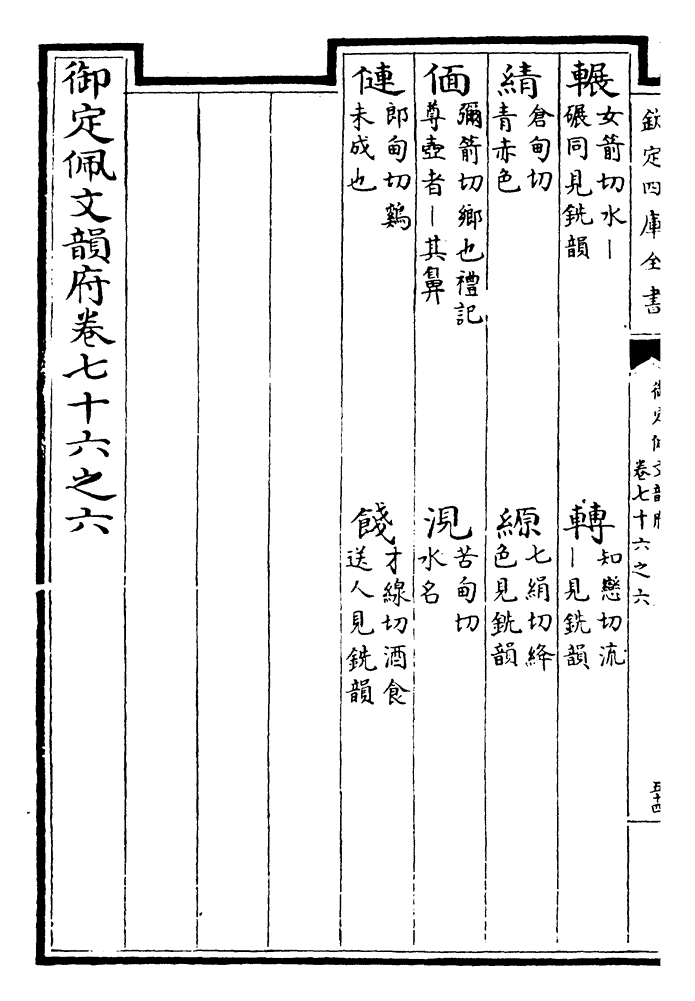 欽定四庫全書
御定佩文韻府
卷七十六之六
五十四
輾 女箭切水丨
碾同見銑韻
轉 知戀切流
丨見銑韻
綪 倉甸切
青赤色
縓 七絹切絳
色見銑韻
偭 彌箭切鄉也禮記
尊壺者丨其鼻
涀 苦甸切
水名
僆 郎甸切鷄
未成也
餞 才線切酒食
送人見銑韻
御定佩文韻府卷七十六之六